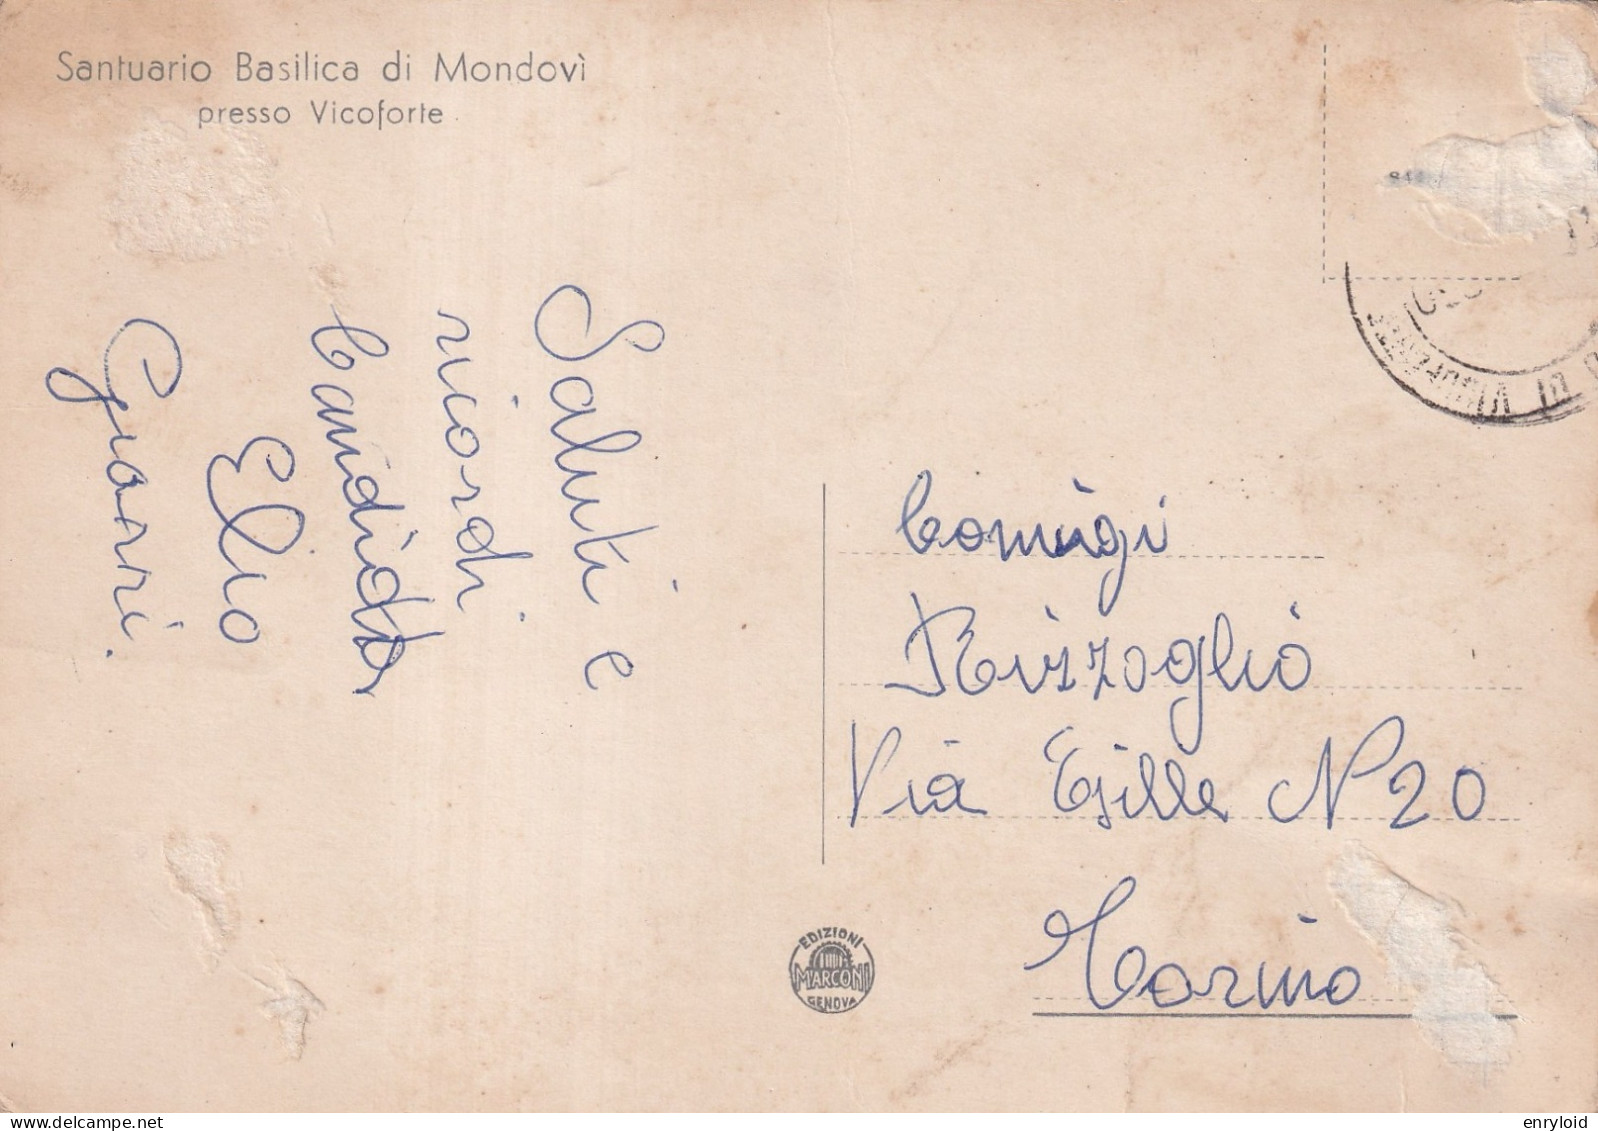 Santuario Basilica di Mondovì
presso Vicoforte
Saluti e
ricordi
Candido
Elio
Gianni.
Coniugi
Rizzoglio
Via Exilles N 20
Torino
EDIZIONI
MARCONI
GENOVA
DI VICOFORTE
www.delcampe.net
enryloid